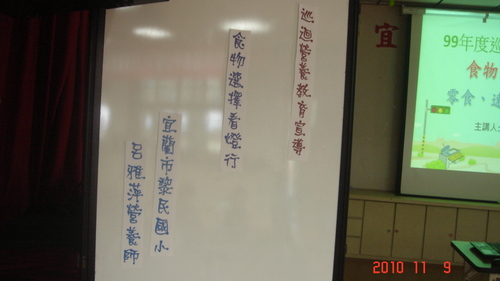 巡迴營養教育宣導
食物選擇看燈行
宜蘭市黎民國小
呂雅萍營養師
宜
99年度巡
食物
零食、
主講人
2010 11 9